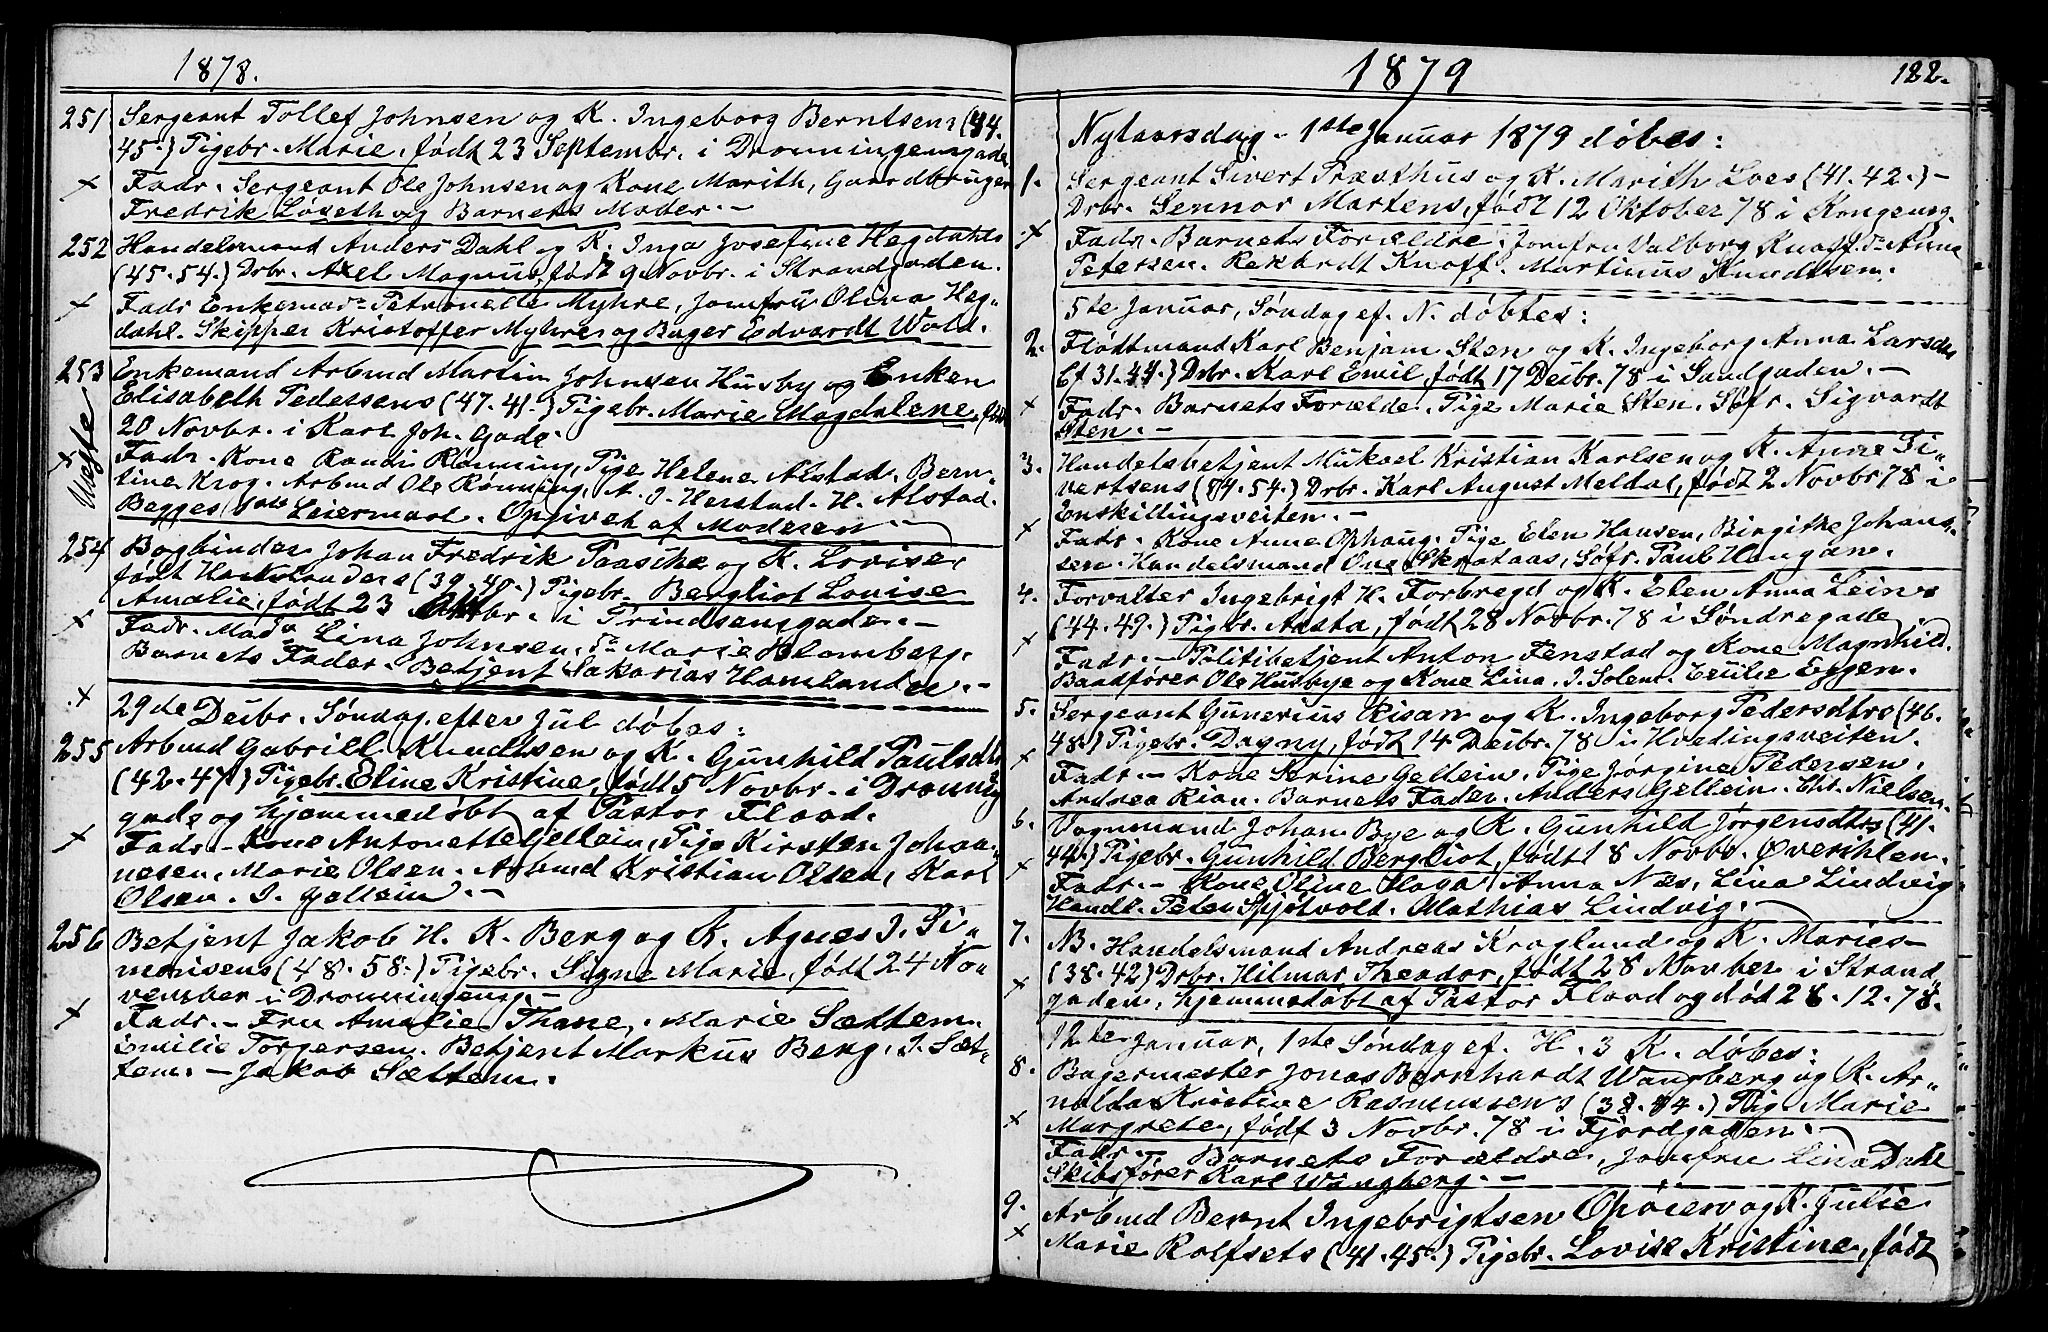 1878.
251 Sergeant Tollef Johnsen og K. Ingeborg Berntsens (44.
45.) Pigebr. Marie, født 23 Septembr. i Dronningensgade
Fadr. Sergeant Ole Johnsen og Kone Marith, Gaardbruger
Fredrik Løseth og Barnets Moder.-
252 Handelsmand Anders Dahl og K. Inga Josefine Hegdahls
(45.54.) Drbr. Axel Magnus, født 9 Novbr. i Strandgaden.
Fadr Enkemad. Petronelle Myhre, Jomfru Olina Heg-
dahl. Skipper Kristoffer Myhre og Bager Edvardt Wold.
253 Enkemand Arbmd Martin Johnsen Husby og Enken
Elisabeth Pedersens (47.41.) Pigebr. Marie Magdalene, født
20 Novbr. i Karl Joh. Gade.
Fadr. Kone Randi Rønning, Pige Helene Alstad. Bern-
tine Krog. Arbmd Ole Rønning, A. J. Herstad. H. Alstad.
Begges Leiermaal. Opgivet af Moderen.-
254 Bogbinder Johan Fredrik Paasche og K. Lovise
født (39.40.) Pigebr. Bergliot Louise
Amalie, født 23 Oktbr. i Prindsensgade.-
Fadr. Mad. Lina Johnsen, Marie Holmberg.
Barnets Fader. Betjent Sakarias Hamlander.-
29de Decbr. Søndag efter Jul døbes:
255 Arbmd Gabriel Knudtsen og K. Gunhild Paulsdtr
(42.47) Pigebr. Eline Kristine, født 5 Novbr. i Dronning
gade og hjemmedøbt af Pastor Flood.
Fadr.- Kone Antonette Gellein, Pige Kirsten Johan-
nesen, Marie Olsen. Arbmd Kristian Olsen, Karl
Olsen. J. Gellein.-
256 Betjent Jakob H. K. Berg og K. Agnes J. Si-
monsens (48.58.) Pigebr. Signe Marie, født 24 No-
vember i Dronningensg.-
Fadr.- Fru Amalie Thane, Marie Sættem.
Emilie Torgersen. Betjent Markus Berg. J. Sæt-
tem.- Jakob Sættem.
1879
122.
Nytaarsdag - 1ste Januar 1879 døbes:
1. Sergeant Sivert Præsthus og K. Marith Loes (41.42.)-
Drbr. Sennor Martens, født 12 Oktober 78 i Kongensg.
Fadr. Barnets Forældre, Jomfru Valborg Knoff. Anna
Petersen. Rekhardt Knoff. Martinus Knudtsen.
5te Januar, Søndag ef. N. døbtes:
2. Flødtmand Karl Benjam. Sten og K. Ingeborg Anna Larsdtr
31.44.) Drbr. Karl Emil, født 17 Decbr. 78 i Sandgaden.-
Fadr. Barnets Forælde. Pige Marie Sten. Søfr. Sigvardt
Sten.-
3. Handelsbetjent Mikael Kristian Karlsen og K. Anne Si-
vertsens (54.) Drbr. Karl August Meldal, født 2 Novbr 78 i
Enskillingsveiten.-
Fadr. Kone Anne Ophaug. Pige Elen Hansen, Birgithe Johans-
sen. Handelsmand One Skrataas, Søfr. Paul Haugan.
4. Forvalter Ingebrigt H. Forbregd og K. Elen Anna Leins
(44.49.) Pigbr. Aasta, født 28 Novbr. 78 i Søndregade
Fadr.- Politibetjent Anton Fenstad og Kone Magnhild.
Baadfører Ole Husbye og Kone Lina. J. Solem. Emilie Eggen.
5. Sergeant Gunerius Risan og K. Ingeborg Pedersdtrs (46.
48.) Pigebr. Dagny, født 14 Decbr. 78 i Hvedingsveiten.
Fadr.- Kone Serine Gellein. Pige Jørgine Pedersen.
Andrea Rian. Barnets Fader. Anders Gellein. Chr. Nielsen.
6. Vognmand Johan Bye og K. Gunhild Jørgensdtrs (41.
44.) Pigebr. Gunhild Bergliot, født 18 Novbr. Øverihlen.
Fadr.- Kone Oline Haga, Anna Næs, Lina Lindvig
Handl. Peter Spjøtvold. Mathias Lindvig.-
7. NB. Handelsmand Andreas Kroglund og K. Maries-
(38.42) Drbr. Hilmar Theodor, født 28 Novber i Strand
gaden, hjemmedøbt af Pastor Flood og død 28.12.78.
12te Januar, 1ste Søndag ef. H. 3 K. døbes:
8. Bagermester Jonas Bernhardt Wangberg og K. Ar-
nolda Kristine Rasmussens (38.44.) Pig. Marie
Margrete, født 3 Novbr. 78 i Fjordgaden.-
Fadr.- Barnets Forældre, Jomfru Lina Dahl
Skibsfører Karl Wangberg.-
9. Arbmd Bernt Ingebrigtsen Opøien og K. Julie
Marie Rolfsets (41.45.) Pigebr. Lovise Kristine, født